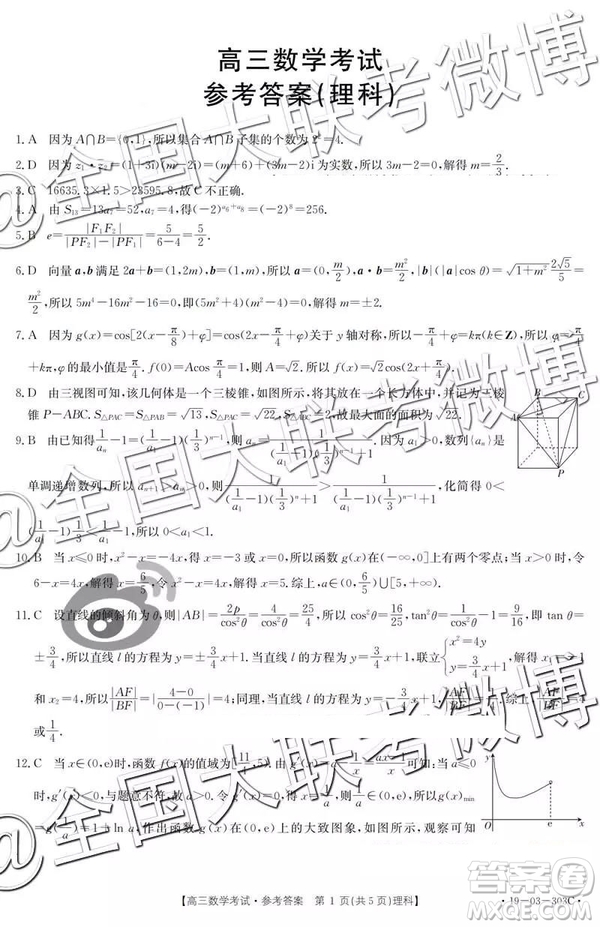 高三数学考试
参考答案(理科)
1. A 因为A∩B={0,1},所以集合A∩B子集的个数为2²=4.
2. D 因为z₁·z₂=(1+3i)(m-2i)=(m+6)+(3m-2)i为实数,所以3m-2=0,解得m=2/3.
3. C 16635.3×1.5>23595.8,故C不正确.
4. A 由S₁₃=13a₇=52,a₇=4,得(-2)^(a₆+a₈)=(-2)⁸=256.
5. B e=|F₁F₂|/(|PF₂|-|PF₁|)=5/(6-4)=5/2.
6. D 向量a,b满足2a+b=(1,2m),b=(1,m),所以a=(0,m/2),a·b=m²/2,|b|(|a|cos θ)=√(1+m²)·2√5/5=
m²/2,所以5m⁴-16m²-16=0,即(5m²+4)(m²-4)=0,解得m=±2.
7. A 因为g(x)=cos[2(x-π/8)+φ]=cos(2x-π/4+φ)关于y轴对称,所以-π/4+φ=kπ(k∈Z),所以φ=kπ+
π/4,φ的最小值是π/4.f(0)=Acos π/4=1,则A=√2.所以f(x)=√2cos(2x+π/4).
8. D 由三视图可知,该几何体是一个三棱锥,如图所示,将其放在一个长方体中,并记为三棱
锥P-ABC.S△PAC=√13,S△PAB=√22,S△ABC=2,故最大面的面积为√22.
9. B 由已知得1/aₙ-1=(1/a₁-1)(1/3)ⁿ⁻¹,则aₙ=1/((1/a₁-1)(1/3)ⁿ⁻¹+1).因为a₁>0,数列{aₙ}是
单调递增数列,所以aₙ₊₁>aₙ>0,则1/((1/a₁-1)(1/3)ⁿ+1)>1/((1/a₁-1)(1/3)ⁿ⁻¹+1),化简得0<
(1/a₁-1)1/3<1/a₁-1,所以0<a₁<1.
10. B 当x≤0时,x²-x=0,得x=-4或x=0,所以函数g(x)在(-∞,0]上有两个零点;当x>0时,令
6-x=4x,解得x=6/5,令x²-3x-6=4x,解得x=5.综上,a∈[0,6/5)∪[5,+∞).
11. C 设直线的倾斜角为θ,则|AB|=2p/cos²θ=4/cos²θ=25/4,所以cos²θ=16/25,tan²θ=1/cos²θ-1=9/16,即tan θ
=±3/4,所以直线l的方程为y=±3/4x+1.当直线l的方程为y=3/4x+1,联立{x²=4y,y=3/4x+1,解得x₁=-1
和x₂=4,所以|AF|/|BF|=|(4-0)/(0-(-1))|=4;同理,当直线l的方程为y=-3/4x+1,|AF|/|BF|=1/4.综上,|AF|/|BF|=4
或1/4.
12. C 当x∈(0,e)时,函数f(x)的值域为[11/4,5).由g′(x)=a-1/x=(ax-1)/x可知:当a≤0
时,g′(x)<0,与题意不符,故a>0.令g′(x)=0,得x=1/a,则1/a∈(0,e),所以g(x)min
=g(1/a)=1+ln a,作出函数g(x)在(0,e]上的大致图象,如图所示,观察可知
y
O
e
x
A
B
C
P
【高三数学考试·参考答案 第1页(共5页)理科】
·19-03-303C·
@全国大联考微博
@全国大联考微博
@全国大联考微博
答案圈
MXQE.COM